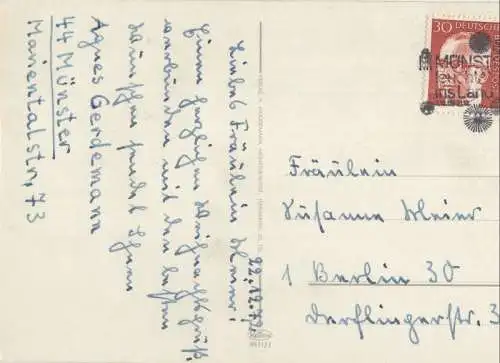 22.12.72.
Liebes Fräulein Meier!
Einen herzlichen Weihnachtsgruß,
verbunden mit den besten
Wünschen sendet Ihnen
Agnes Gerdemann
44 Münster
Marientalstr. 73
30 DEUTSCHE
MÜNST
ins Land
Fräulein
Susanne Meier
1 Berlin 30
Derflingerstr. 3